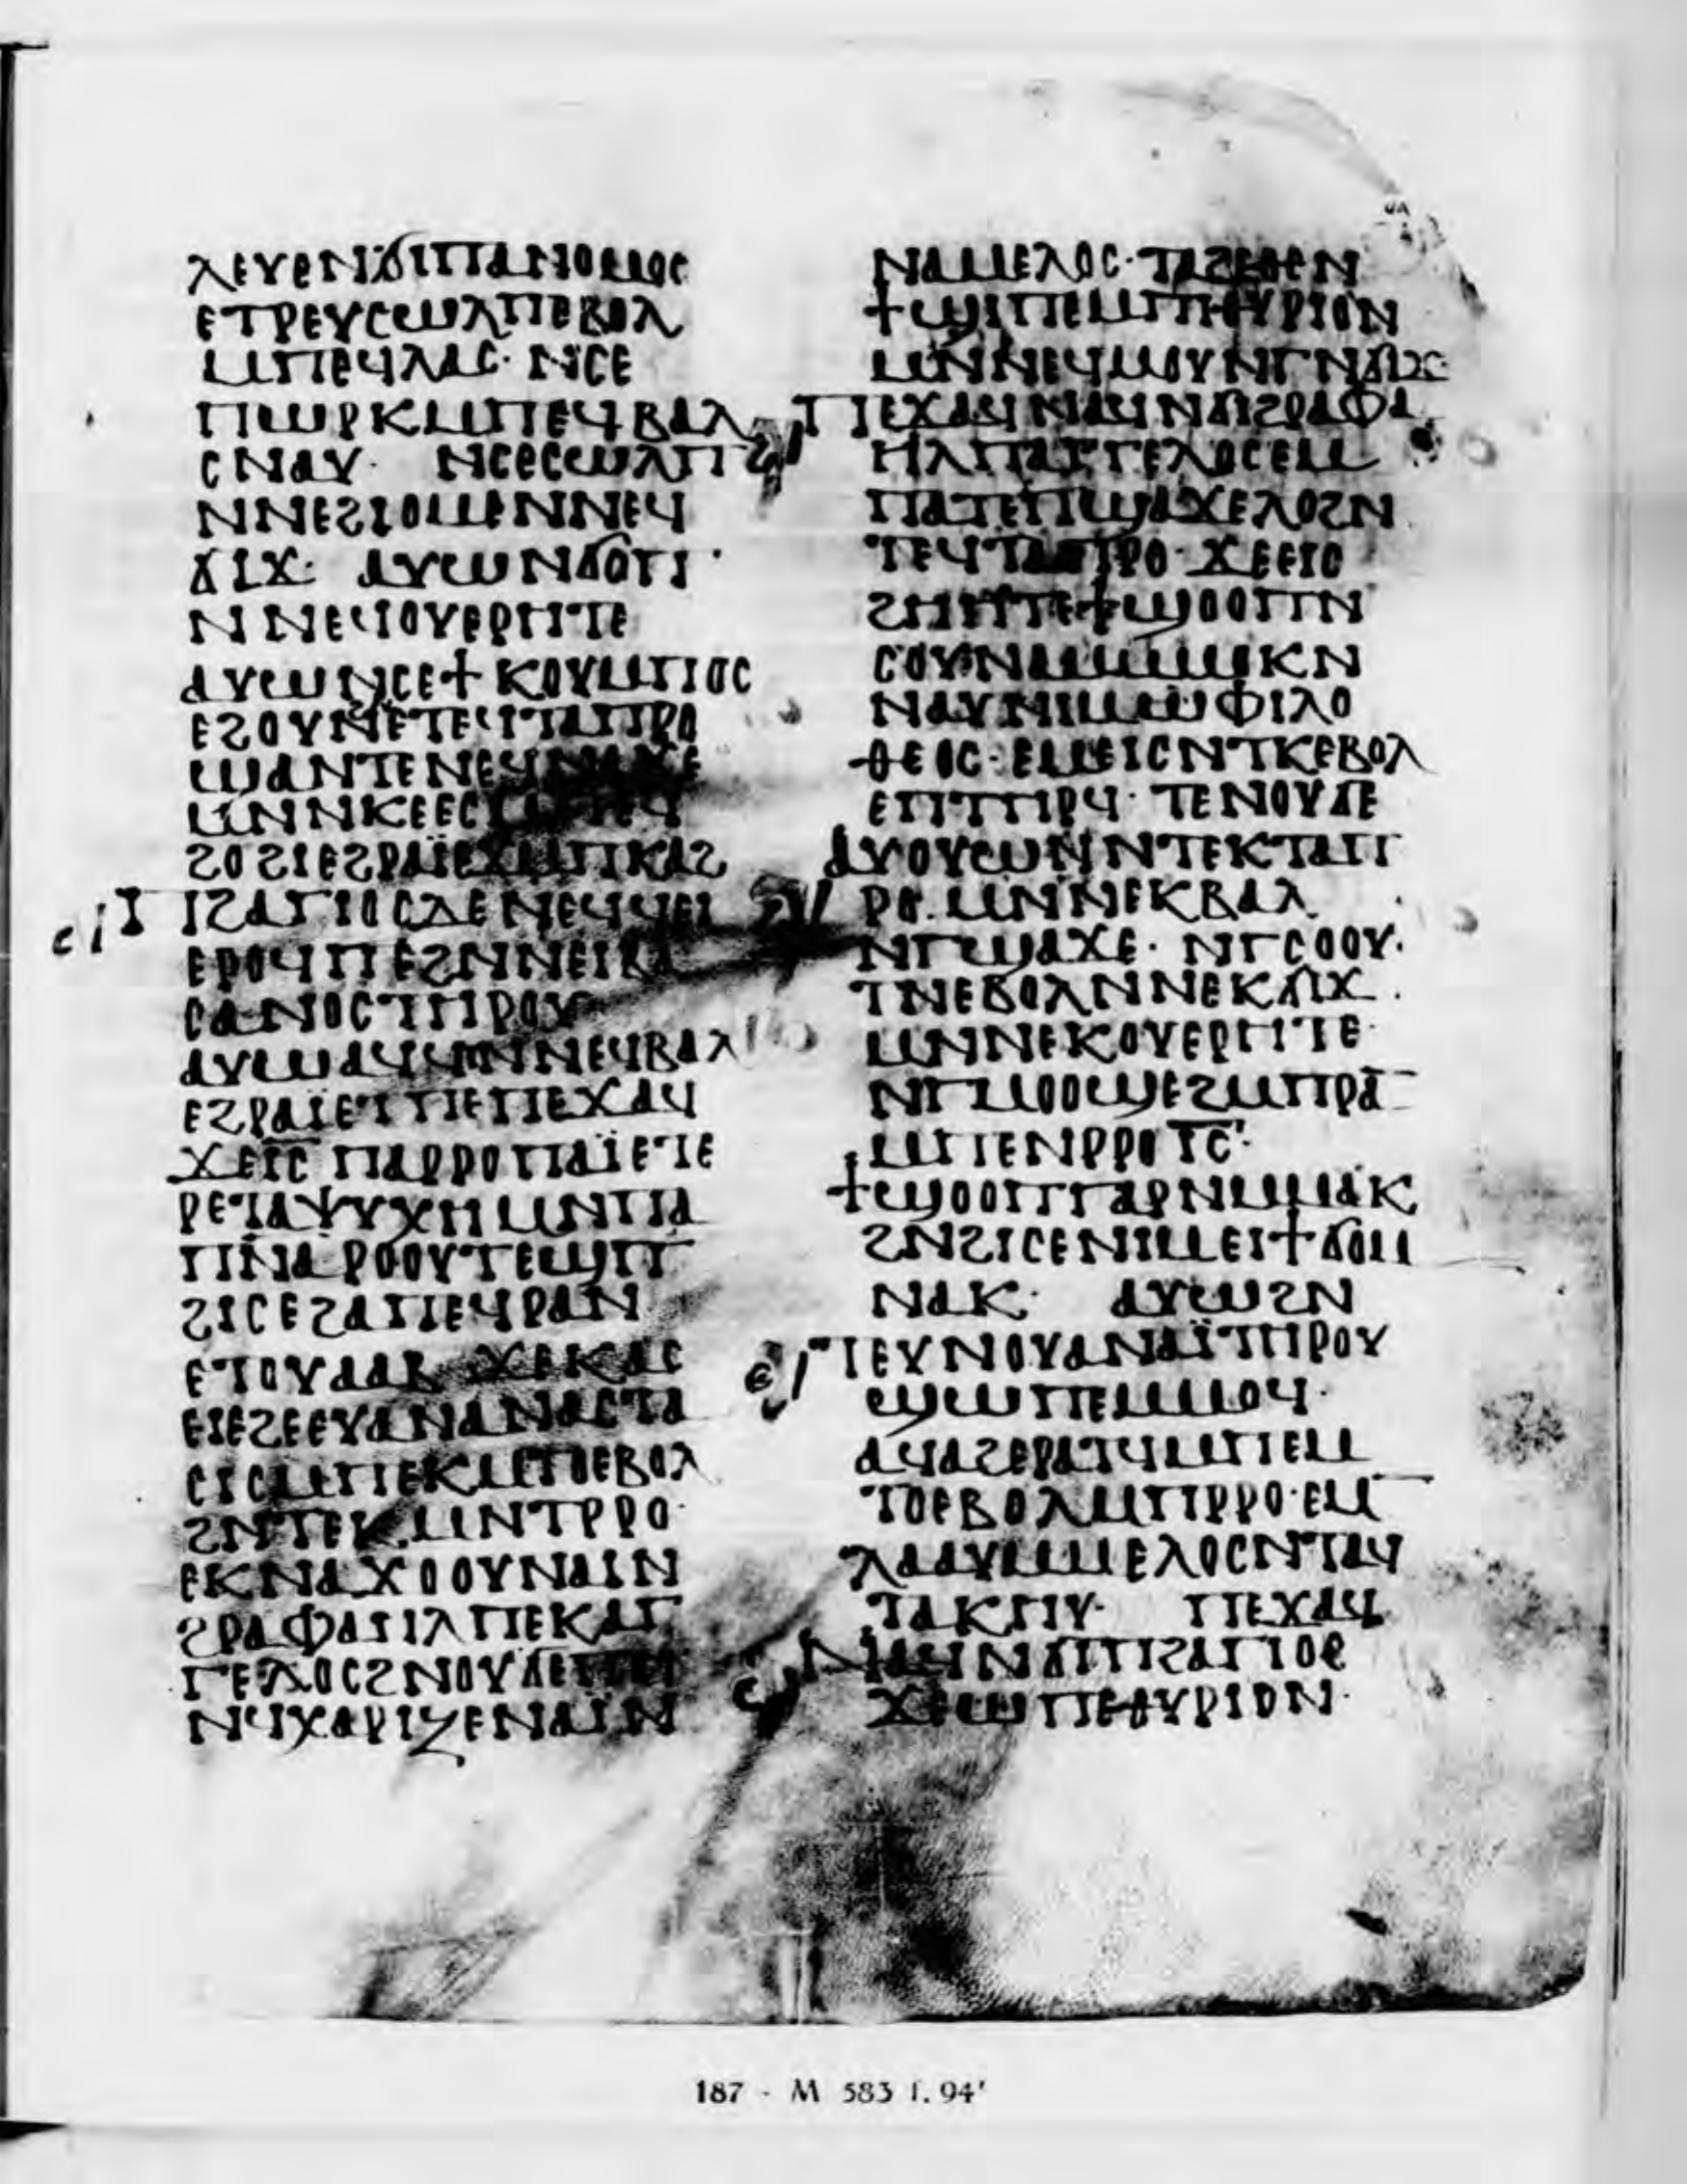 ⲗⲉⲩⲉⲛϭⲓⲡⲁⲛⲟⲙⲟⲥ
ⲉⲧⲣⲉⲩⲥⲱⲗⲡⲉⲃⲟⲗ
ⲙⲡⲉϥⲗⲁⲥ· ⲛⲥⲉ
ⲡⲱⲣⲕⲙⲡⲉϥⲃⲁⲗ
ⲥⲛⲁⲩ· ⲛⲥⲉⲥⲱⲗⲡ
ⲛⲛⲉϩⲓⲟⲙⲉⲛⲛⲉϥ
ϭⲓϫ· ⲁⲩⲱⲛϭⲟⲡ·
ⲛⲛⲉϥⲟⲩⲉⲣⲏⲧⲉ
ⲁⲩⲱⲛⲥⲉϯⲕⲟⲩⲙⲡⲓⲟⲥ
ⲉϩⲟⲩⲛⲉⲧⲉϥⲧⲁⲡⲣⲟ
ϣⲁⲛⲧⲉⲛⲉϥ
ⲙⲛⲛⲕⲉⲉⲥ
ϩⲟϩⲓⲉϩⲣⲁⲓ̈ⲉϫⲙⲡⲕⲁϩ
ⲡϩⲁⲅⲓⲟⲥⲇⲉⲛⲉϥϥⲉⲓ
ⲉⲣⲟϥⲡⲉϩⲛⲛⲉⲓⲃⲁ
ⲥⲁⲛⲟⲥⲧⲏⲣⲟⲩ
ⲁⲩⲱⲁϥϥⲓⲛⲛⲉϥⲃⲁⲗ
ⲉϩⲣⲁⲓ̈ⲉⲧⲡⲉⲡⲉϫⲁϥ
ϫⲉⲓ̅ⲥ̅ ⲡⲁⲣⲣⲟⲡⲁⲓ̈ⲉⲧⲉ
ⲣⲉⲧⲁⲯⲩⲭⲏⲙⲛⲡⲁ
ⲡⲛ̅ⲁ̅ⲣⲟⲟⲩⲧⲉϣⲡ
ϩⲓⲥⲉϩⲁⲡⲉϥⲣⲁⲛ
ⲉⲧⲟⲩⲁⲁⲃ ϫⲉⲕⲁⲥ
ⲉⲓⲉϩⲉⲉⲩⲁⲛⲁⲛⲁⲥⲧⲁ
ⲥⲓⲥⲙⲡⲉⲕⲙⲧⲟⲉⲃⲟⲗ
ϩⲛⲧⲉⲕⲙⲛⲧⲣⲣⲟ·
ⲉⲕⲛⲁϫⲟⲟⲩⲛⲁⲓⲛ
ϩⲣⲁⲫⲁⲏⲗⲡⲉⲕⲁⲅ
ⲅⲉⲗⲟⲥϩⲛⲟⲩϭⲉⲡⲏ
ⲛϥⲭⲁⲣⲓⲍⲉⲛⲁⲓⲛ
ⲛⲁⲙⲉⲗⲟⲥ· ⲧⲁϩⲉⲑⲉⲛ
ϯϣⲓⲡⲉⲙⲡⲑⲩⲣⲓⲟⲛ
ⲙⲛⲛⲉϥⲙⲟⲩⲛⲅⲛϭⲓϫ·
ⲡⲉϫⲁϥⲛⲁϥⲛϭⲓϩⲣⲁⲫⲁ
ⲏⲗⲡⲁⲅⲅⲉⲗⲟⲥⲉⲙ
ⲡⲁⲧⲉⲡϣⲁϫⲉⲗⲟϩⲛ
ⲧⲉϥⲧⲁⲡⲣⲟ· ϫⲉⲉⲓⲥ
ϩⲏⲏⲧⲉϯϣⲟⲟⲡⲛ
ⲛⲁⲩⲛⲓⲙⲱⲫⲓⲗⲟ
ⲑⲉⲟⲥ· ⲉⲙⲉⲓⲥⲛⲧⲕⲉⲃⲟⲗ
ⲉⲡⲧⲏⲣϥ· ⲧⲉⲛⲟⲩϭⲉ
ⲁⲩⲟⲩⲱⲛⲛⲧⲉⲕⲧⲁⲡ
ⲣⲟ. ⲙⲛⲛⲉⲕⲃⲁⲗ
ⲛⲅϣⲁϫⲉ· ⲛⲅⲥⲟⲟⲩ·
ⲧⲛⲉⲃⲟⲗⲛⲛⲉⲕϭⲓϫ.
ⲙⲛⲛⲉⲕⲟⲩⲉⲣⲏⲧⲉ·
ⲛⲅⲙⲟⲟϣⲉϩⲙⲡⲣⲁ̅
ⲙⲡⲉⲛⲣⲣⲟ ⲓ̅ⲥ̅·
ϯϣⲟⲟⲡⲅⲁⲣⲛⲙⲙⲁⲕ
ϩⲛϩⲓⲥⲉⲛⲓⲙⲉⲓϯϭⲟⲙ
ⲛⲁⲕ· ⲁⲩⲱϩⲛ
ⲧⲉⲩⲛⲟⲩⲁⲛⲁⲓ̈ⲧⲏⲣⲟⲩ
ϣⲱⲡⲉⲙⲙⲟϥ·
ⲁϥⲁϩⲉⲣⲁⲧϥⲙⲡⲉⲙ
ⲧⲟⲉⲃⲟⲗⲙⲡⲣⲣⲟ· ⲉⲙ̅
ⲗⲁⲁⲩⲙⲙⲉⲗⲟⲥⲛⲧⲁϥ
ⲧⲁⲕⲏⲩ· ⲡⲉϫⲁϥ
ⲛⲁϥⲛϭⲓⲡϩⲁⲅⲓⲟⲥ
ϫⲉⲱⲡⲉⲑⲩⲣⲓⲟⲛ·
187 - M 583 f. 94ᵛ